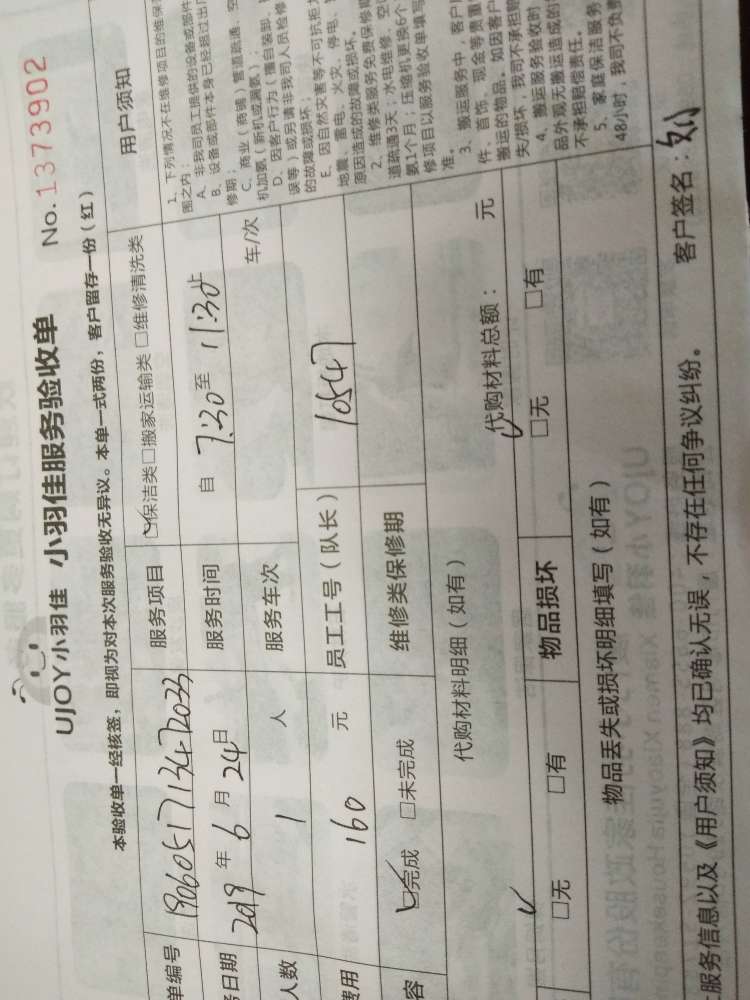 UJOY小羽佳 小羽佳服务验收单 No. 1373902
本验收单一经核签，即视为对本次服务验收无异议。本单一式两份，客户留存一份（红）
单编号 服务项目 保洁类 □搬家运输类 □维修清洗类 用户须知
务日期 2019 年 6 月 24 日 服务时间 自 7:30 至 11:30 止
人数 1 人 服务车次 车/次
费用 160 元 员工工号（队长） 10547
容 完成 □未完成 维修类保修期
代购材料明细（如有） 代购材料总额： 元
□无 □有 物品损坏 □无 □有
物品丢失或损坏明细填写（如有）
服务信息以及《用户须知》均已确认无误，不存在任何争议纠纷。 客户签名：
1、下列情况不在维修项目的维保
围之内：
A、非我司员工提供的设备或部件
B、设备或部件本身已经超过出厂
修期；
C、商业（商铺）管道疏通、空
机加氨（新机或漏氨）。
D、因客户行为（擅自装卸、
误等）或另请非我司人员检修
的故障或损坏；
E、因自然灾害等不可抗拒力
地震、雷电、火灾、停电、
原因造成的故障或损坏。
2、维修类服务免费保修期
道疏通3天；水电维修、空
氨1个月；压缩机更换6个
修项目以服务验收单填写
准。
3、搬运服务中，客户
件、首饰、现金等贵重
搬运的物品。如因客户
失/损坏，我司不承担赔
4、搬运服务验收时
品外观无搬运造成的
不承担赔偿责任。
5、家庭保洁服务
48小时，我司不负责